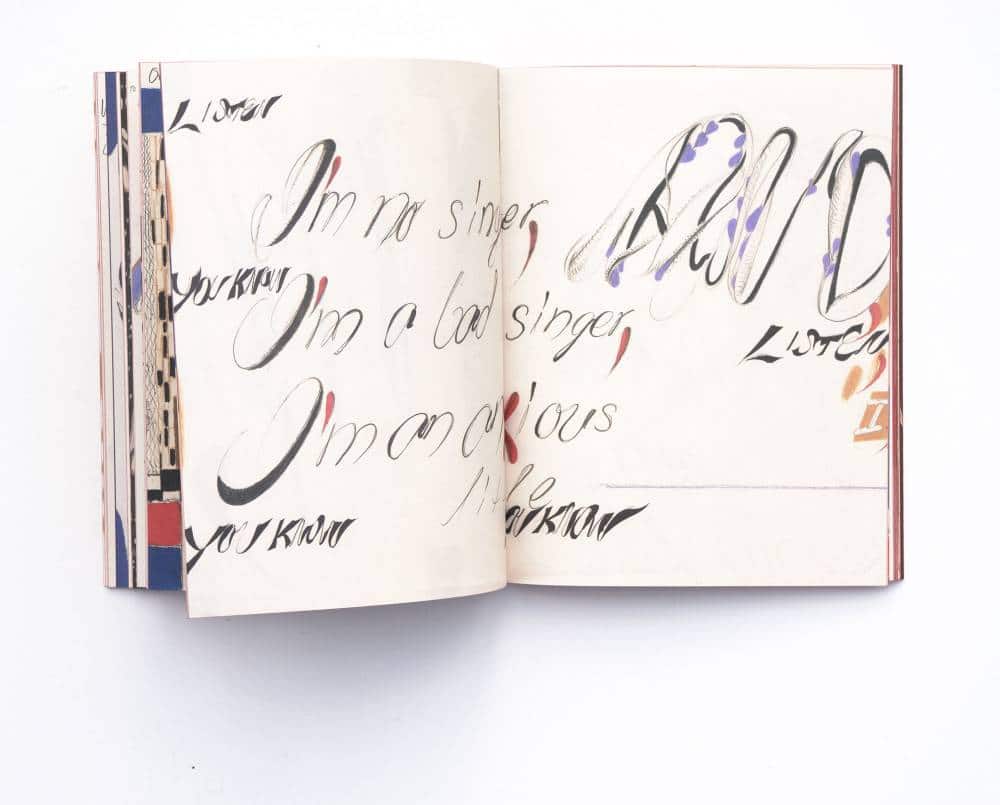 LISTEN
I'm no singer,
AND
YOU KNOW
I'm a bad singer,
LISTEN
I'm an anxious
II
YOU KNOW
YOU KNOW